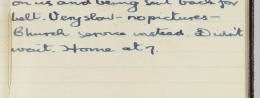 on us and being sent back for
belt. Very slow - no pictures -
Church service instead. Didn't
wait. Home at 7.